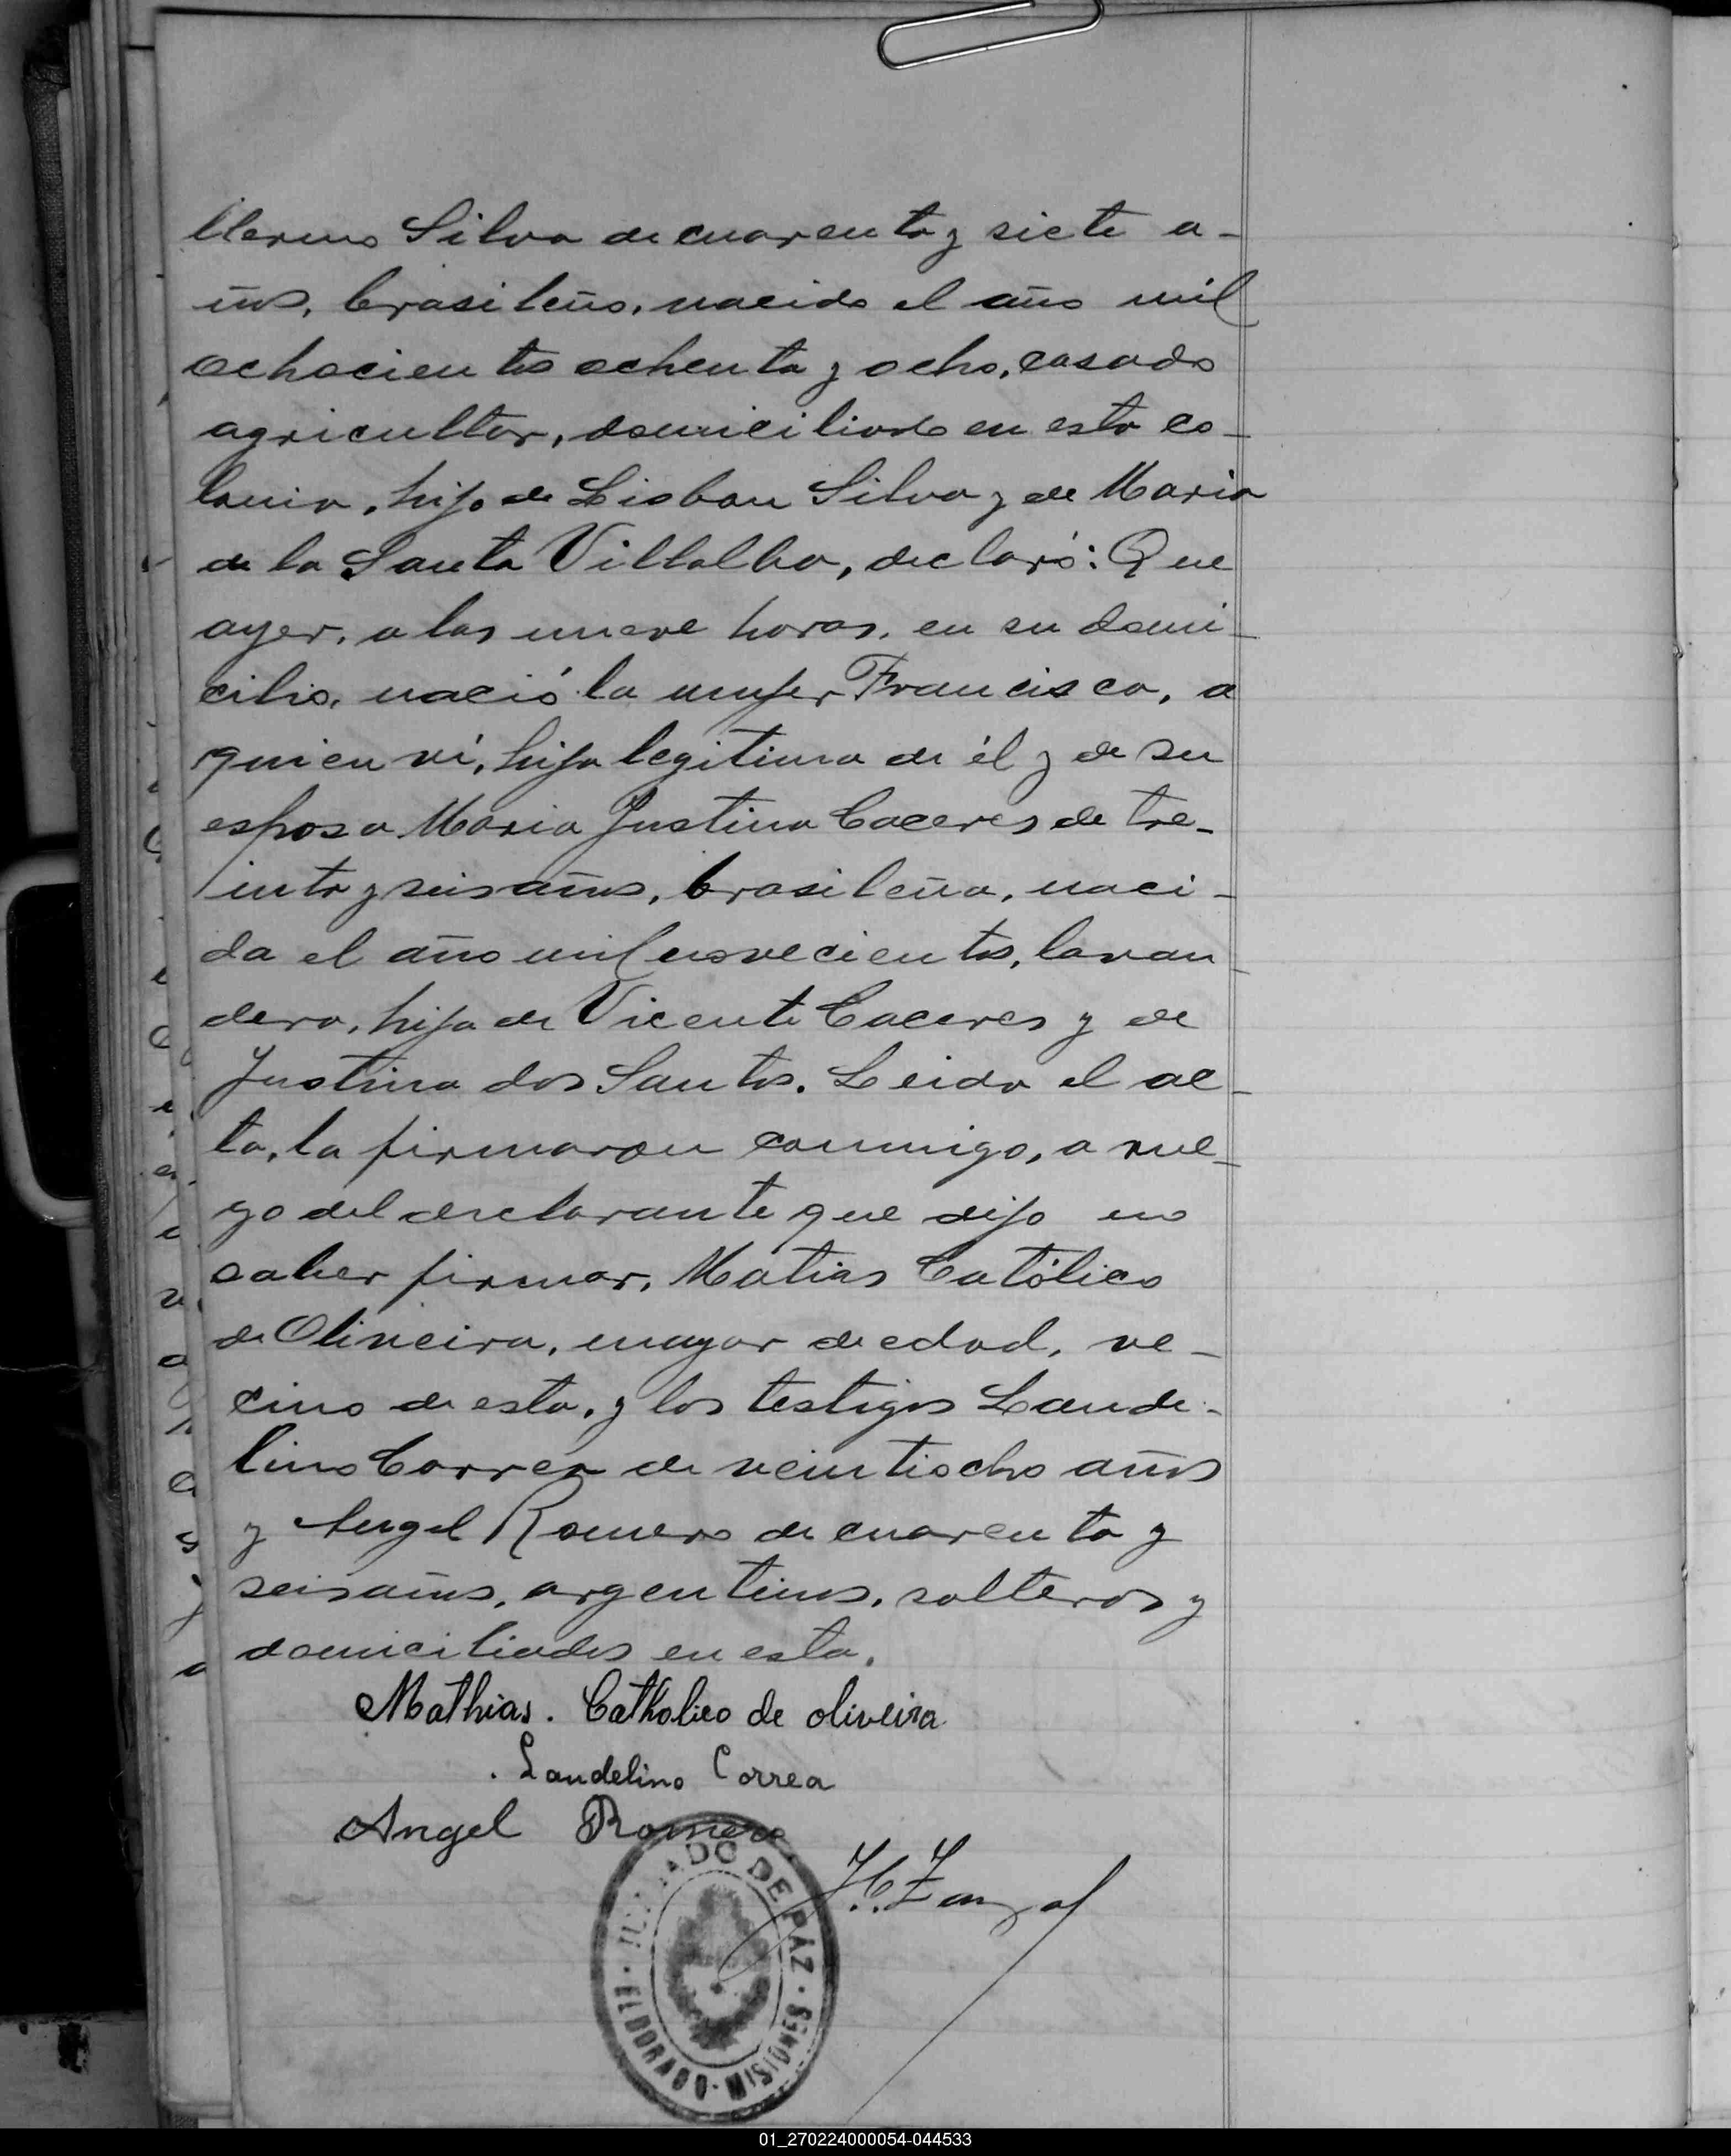 llermo Silva de cuarenta y siete a-
ños, brasileño, nacido el año mil
ochocientos ochenta y ocho, casado
agricultor, domiciliado en esta co-
lonia, hijo de Lisbon Silva y de Maria
de la Santa Villalba, declaró: Que
ayer, a las nueve horas, en su domi-
cilio, nació la mujer Francisca, a
quien vi, hija legitima de él y de su
esposa Maria Justina Caceres de tre-
inta y seis años, brasileña, naci-
da el año mil novecientos, lavan-
dera, hija de Vicente Caceres y de
Justina dos Santos. Leida el ac-
ta, la firmaron conmigo, a rue-
go del declarante que dijo no
saber firmar, Matias Católico
de Oliveira, mayor de edad, ve-
cino de esta, y los testigos Lande-
lino Correa de veintiocho años
y Angel Romero de cuarenta y
seis años, argentinos, solteros y
domiciliados en esta.
Mathias. Catholico de oliveira
Landelino Correa
Angel Romero
JUZGADO DE PÁZ
ELDORADO - MISIONES
01_270224000054-044533